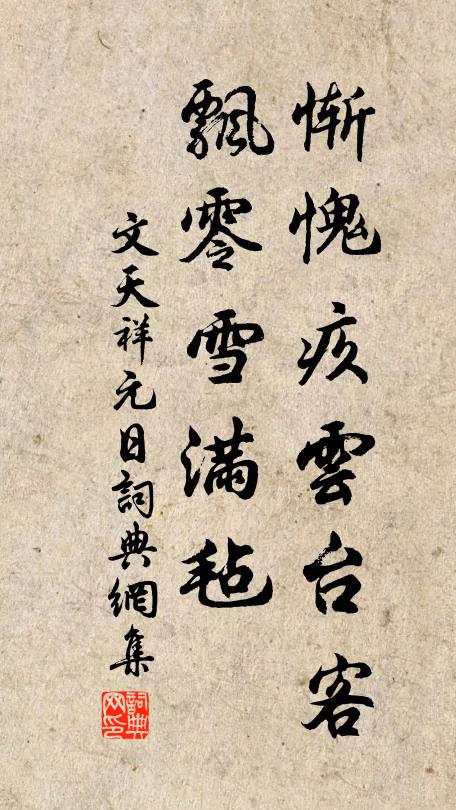 慚愧疚雲台客
飄零雪滿氈
文天祥元日詞典網集
詞典
网印